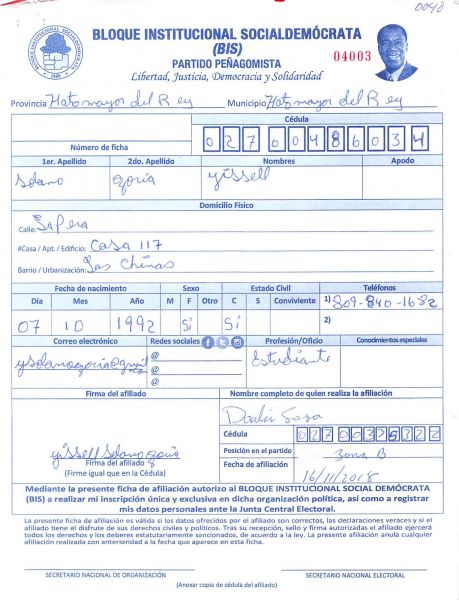 0040
BLOQUE INSTITUCIONAL SOCIALDEMÓCRATA
(BIS)
PARTIDO PEÑAGOMISTA
04003
Libertad, Justicia, Democracia y Solidaridad
Provincia Hato mayor del Rey Municipio Hato mayor del Rey
Cédula
Número de ficha
027 0048603 4
1er. Apellido 2do. Apellido Nombres Apodo
Solano yissell
Domicilio Físico
Calle:
#Casa / Apt. / Edificio: Casa 117
Barrio / Urbanización: Las Chinas
Fecha de nacimiento Sexo Estado Civil Teléfonos
Día Mes Año M F Otro C S Conviviente 1) 809-840-1682
07 10 1992 Si Si 2)
Correo electrónico Redes sociales Profesión/Oficio Conocimientos especiales
@ Estudiante
@
@
Firma del afiliado Nombre completo de quien realiza la afiliación
Cédula
Posición en el partido Zona B
Firma del afiliado
Fecha de afiliación 16/11/2018
(Firme igual que en la Cédula)
Mediante la presente ficha de afiliación autorizo al BLOQUE INSTITUCIONAL SOCIAL DEMÓCRATA
(BIS) a realizar mi inscripción única y exclusiva en dicha organización política, así como a registrar
mis datos personales ante la Junta Central Electoral.
La presente ficha de afiliación es válida si los datos ofrecidos por el afiliado son correctos, las declaraciones veraces y si el
afiliado tiene el disfrute de sus derechos civiles y políticos. Tras su recepción, sello y firma autorizadas el afiliado ejercerá
todos los derechos y los deberes estatutariamente sancionados, de acuerdo a la ley. La presente afiliación anula cualquier
afiliación realizada con anterioridad a la fecha que aparece en esta ficha.
SECRETARIO NACIONAL DE ORGANIZACIÓN SECRETARIO NACIONAL ELECTORAL
(Anexar copia de cédula del afiliado)